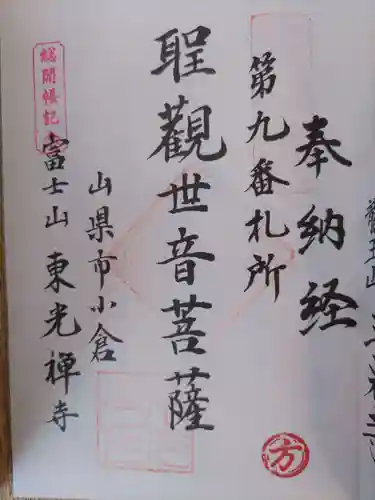 奉納経
第九番札所
聖觀世音菩薩
山県市小倉
富士山 東光禅寺
総開帳記
方